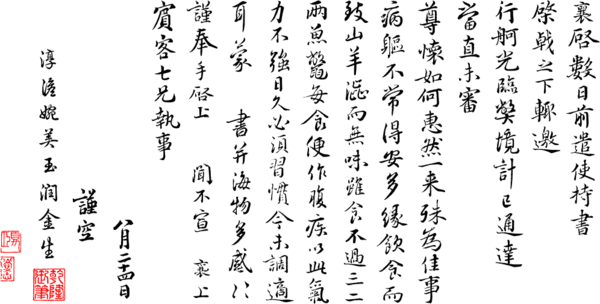 襄啓數日前遣使持書
棨戟之下輙邀
行舸光臨獘境計已通達
當直未審
尊懷如何惠然一来殊為佳事
病軀不常得安多緣飲食而
致山羊澁而無味雖食不過三二
兩魚鼈每食便作腹疾以此氣
力不強日久必須習慣今未調適
耳蒙 書并海物多感〻
謹奉手啓上 聞不宣 襄上
賓客七兄執事
八月二十四日
謹空
淳澹婉美玉潤金生
乾隆
御筆